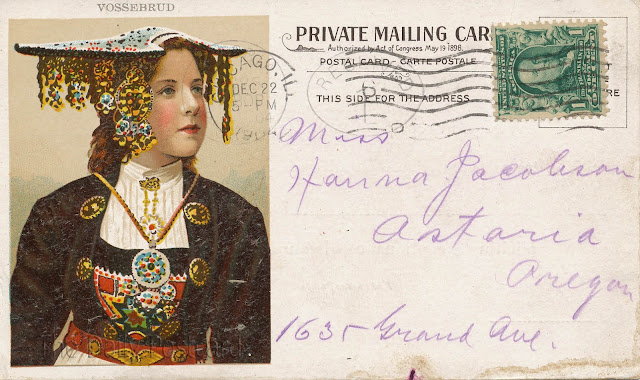 VOSSEBRUD
PRIVATE MAILING CAR
Authorized by Act of Congress, May 19, 1898.
POSTAL CARD - CARTE POSTALE
THIS SIDE FOR THE ADDRESS
CAGO, ILL
DEC 22
5 PM
Miss
Hanna Jacobson
Astoria
Oregon
1635 Grand Ave.